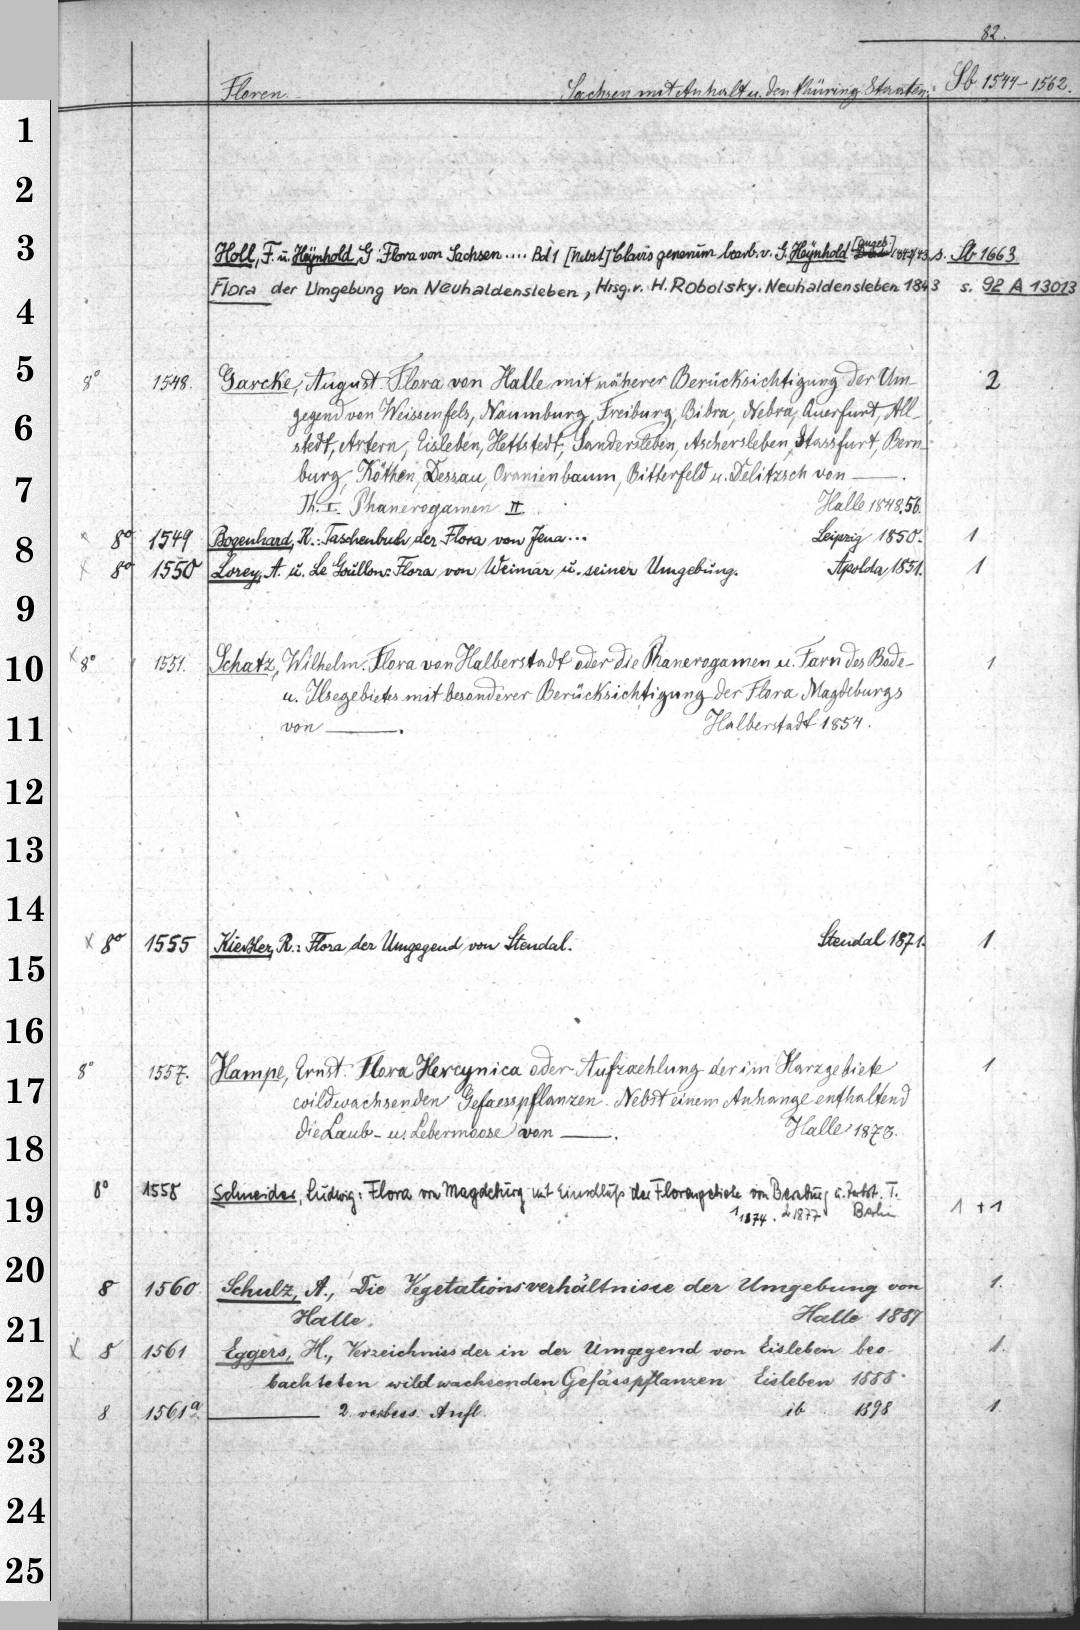 82.
Floren. Sachsen mit Anhalt u. den Thüring. Staaten. Sb 1544-1562.
1
2
3 Holl, F. u. Heynhold, G: Flora von Sachsen .... Bd 1 [Nebst] Clavis generum bearb. v. G. Heynhold 1842/43 s. Sb 1663
Flora der Umgebung von Neuhaldensleben, Hrsg. v. H. Robolsky. Neuhaldensleben 1843 s. 92 A 13013
4
5 8° 1548. Garcke, August. Flora von Halle mit näherer Berücksichtigung der Um- 2
gegend von Weissenfels, Naumburg, Freiburg, Bibra, Nebra, Querfurt, All-
6 stedt, Artern, Eisleben, Hettstedt, Sandersleben, Aschersleben, Stassfurt, Bern-
7 burg, Köthen, Dessau, Oranienbaum, Bitterfeld u. Delitzsch von ———.
Th. I. Phanerogamen II. Halle 1848.56.
8 x 8° 1549 Bogenhard, K.: Taschenbuch der Flora von Jena... Leipzig 1850. 1
x 8° 1550 Lorey, A. u. Le Goullon: Flora von Weimar u. seiner Umgebung. Apolda 1851. 1
9
10 x 8° 1551. Schatz, Wilhelm. Flora von Halberstadt oder die Phanerogamen u. Farn des Bode- 1
u. Ilsegebietes mit besonderer Berücksichtigung der Flora Magdeburgs
11 von ———. Halberstadt 1854.
12
13
14
x 8° 1555 Kießler, R.: Flora der Umgegend von Stendal. Stendal 1871. 1
15
16
8° 1557. Hampe, Ernst. Flora Hercynica oder Aufzaehlung der im Harzgebiete 1
17 wildwachsenden Gefaesspflanzen. Nebst einem Anhange enthaltend
18 die Laub- u. Lebermoose von ———. Halle 1873.
8° 1558 Schneider, Ludwig: Flora von Magdeburg mit Einschluß der Florengebiete von Bernburg u. Zerbst. T. 1 + 1
19 1 1874. 2 1877 Berlin
20 8 1560 Schulz, A., Die Vegetationsverhältnisse der Umgebung von 1.
21 Halle. Halle 1887
x 8 1561 Eggers, H., Verzeichniss der in der Umgegend von Eisleben beo- 1.
22 bachteten wildwachsenden Gefässpflanzen Eisleben 1888.
8 1561a. ——— 2. verbess. Aufl. ib 1898 1.
23
24
25